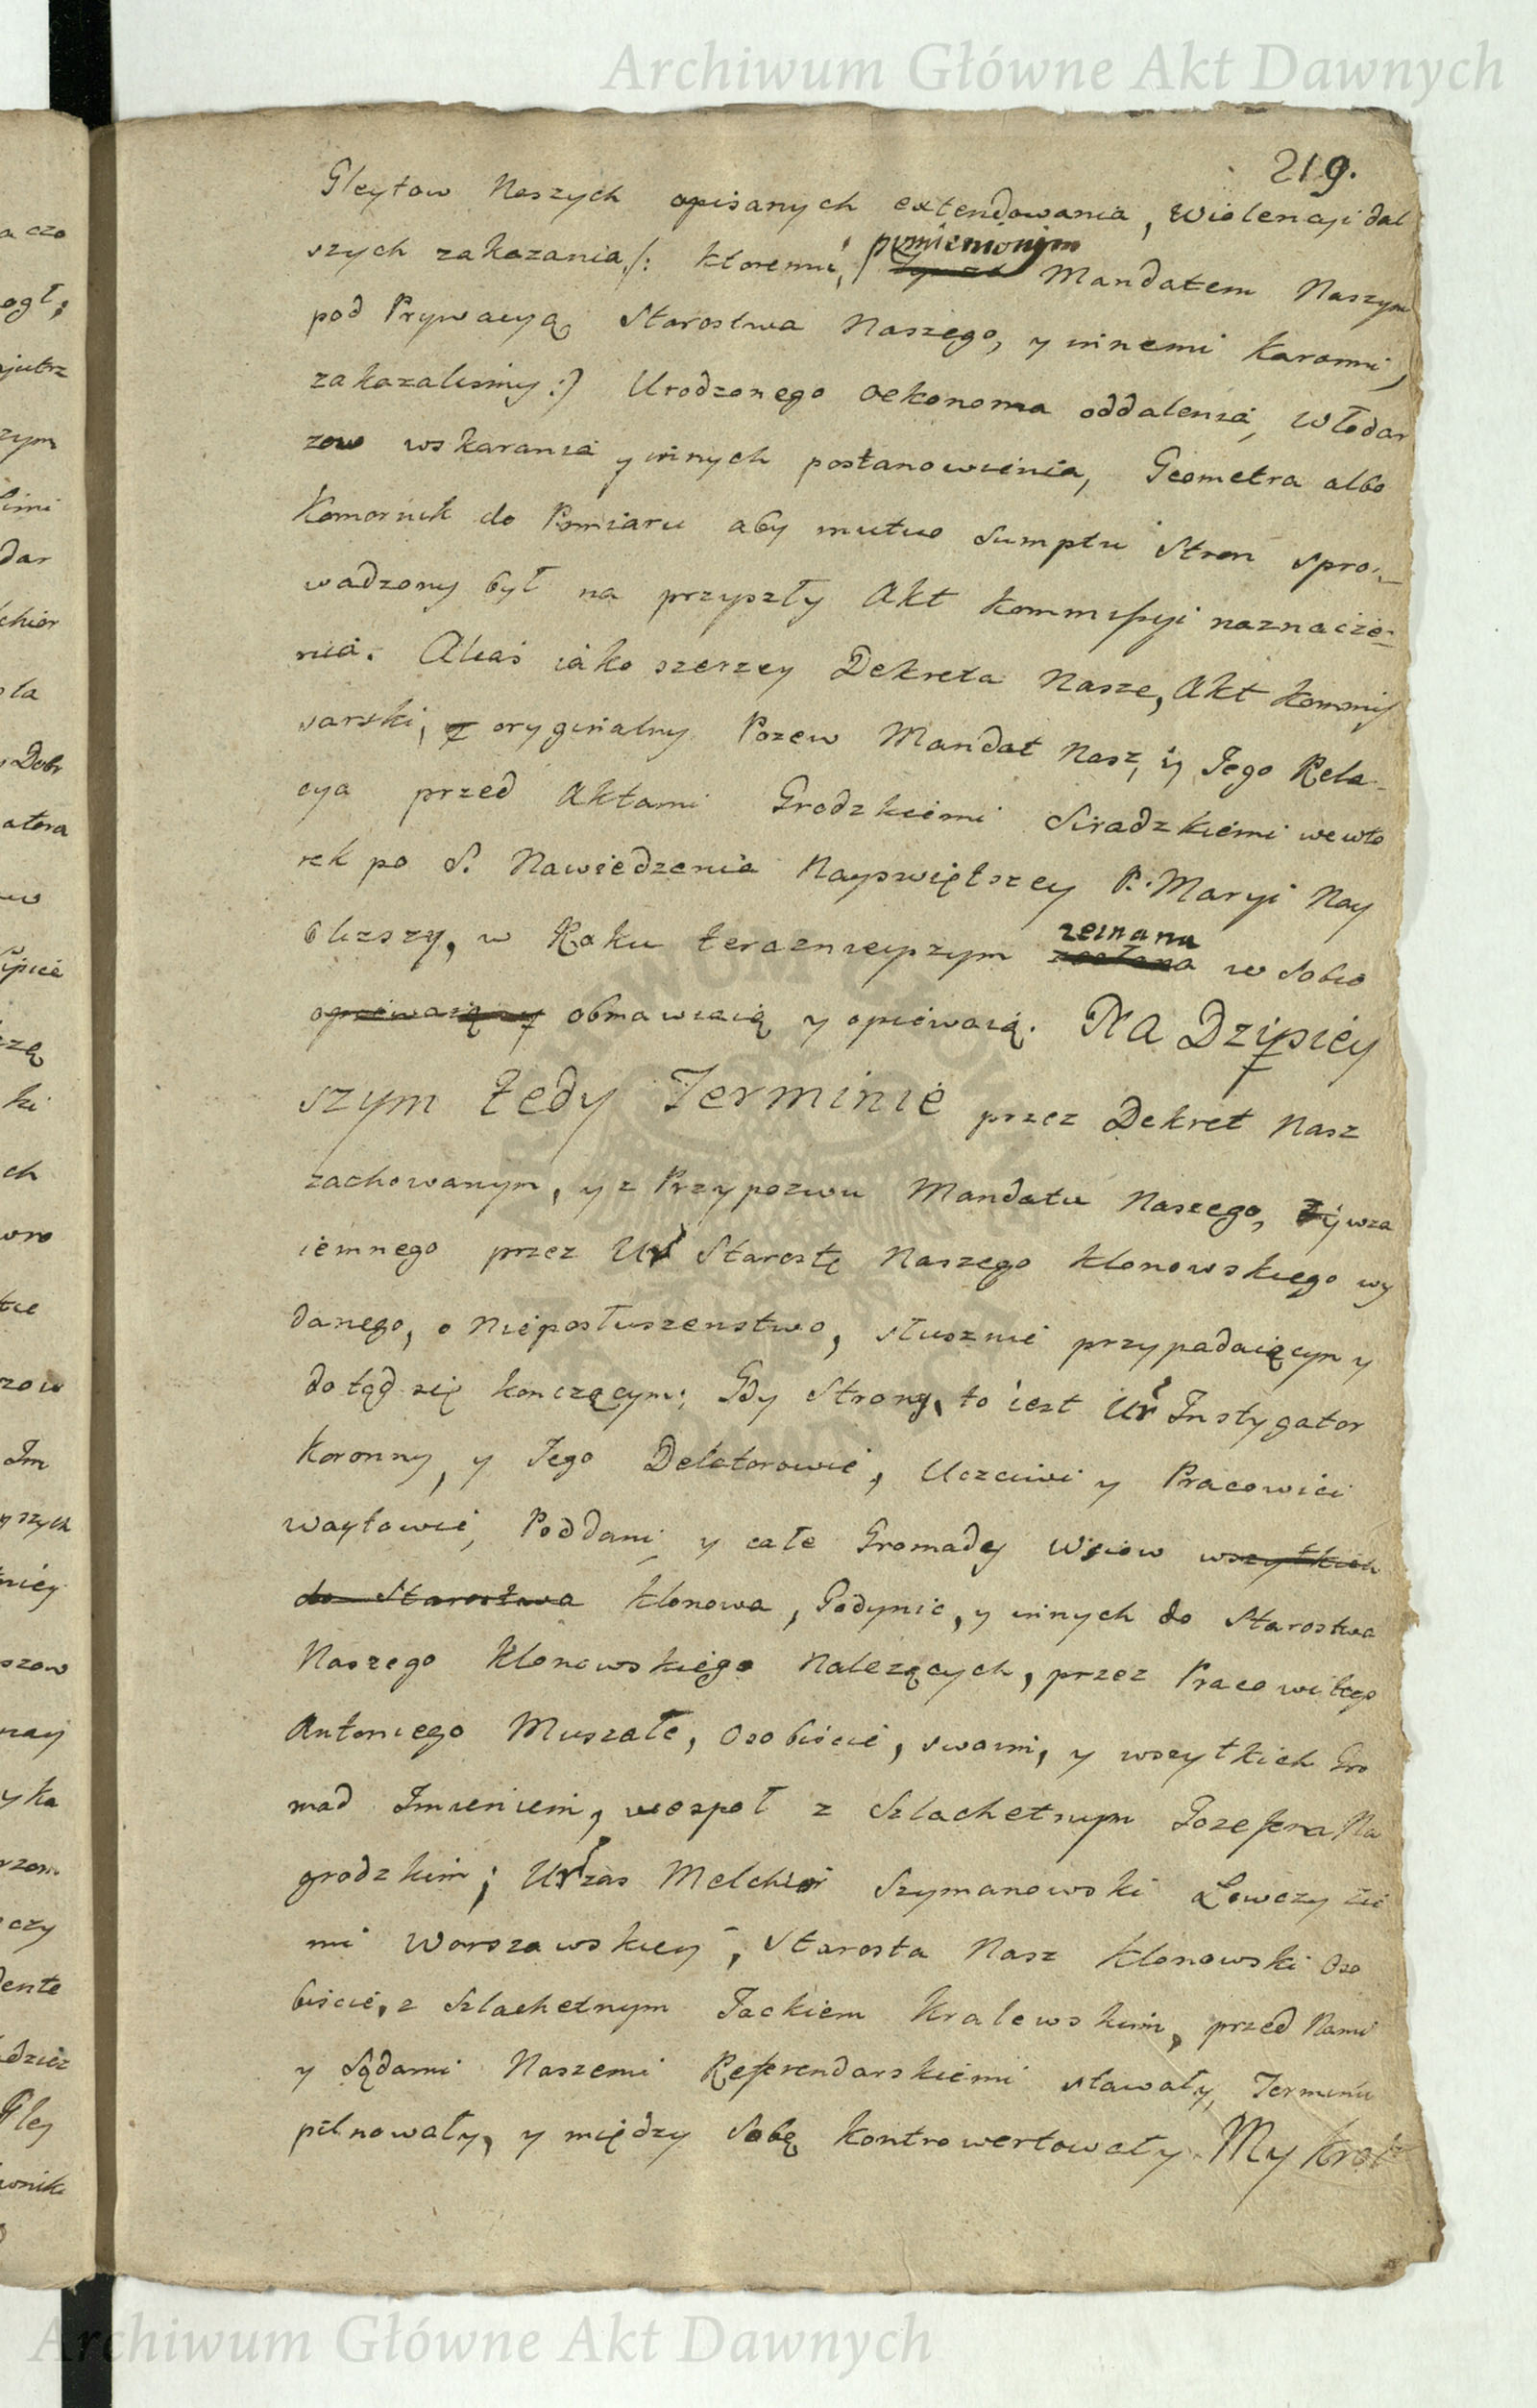 Archiwum Główne Akt Dawnych
219.
Gleytow Naszych opisanych extendowania, Wiolencyi dal
szych zakazania /: ktoremi, / pomienionym Mandatem Naszym
pod Prywacyą Starostwa Naszego, y innemi Karami,
zakazalismy :) Urodzonego Oekonoma oddalenia, Włodar
zow wskarania y innych postanowienia, Geometra albo
Komornik do Pomiaru aby mutuo Sumptu Stron spro-
wadzony był na przyszły Akt Kommissyi naznacze-
nia. Alias iako szerzey Dekreta Nasze, Akt Kommis
sarski, y oryginalny Pozew Mandat Nasz, y Jego Rela-
cya przed Aktami Grodzkiemi Siradzkiemi we wto
rek po S. Nawiedzenia Nayswiętszey P. Maryi Nay
blizszy, w Roku teraznieyszym zeznana w sobie
opiewaią y obmawiaią y opiewaią. Na Dzisiey
szym tedy Terminie przez Dekret Nasz
zachowanym, y z Przypozwu Mandatu Naszego, y wza
iemnego przez Ur Starostę Naszego Klonowskiego wy
danego, o Nieposłuszenstwo, słusznie przypadaiącym y
dotąd się konczącym; Gdy Strony, to iest Ur Instygator
Koronny, y Jego Delatorowie, Uczciwi y Pracowici
Woytowie, Poddani y całe Gromady Wsiow wszytkich
do Starostwa Klonowa, Godynic, y innych do Starostwa
Naszego Klonowskiego Nalezących, przez Pracowitego
Antoniego Muszałę, Osobiscie, swoim, y wszytkich Gro
mad Imieniem, wespoł z Szlachetnym Jozefem Na
grodzkim; Ur zas Melchior Szymanowski Łowczy Zie
mi Warszawskiey, Starosta Nasz Klonowski Oso
biscie, z Szlachetnym Jackiem Kralewskim, przed Nami
y Sądami Naszemi Referendarskiemi stawały, Terminu
pilnowały, y między Sobą kontrowertowały. My Krol
a czo
ogł,
zym
dar
chior
sta
Dobr
atora
zą
ki
ch
zow
Im
yszych
szow
yka
czy
dente
Gley
Archiwum Główne Akt Dawnych